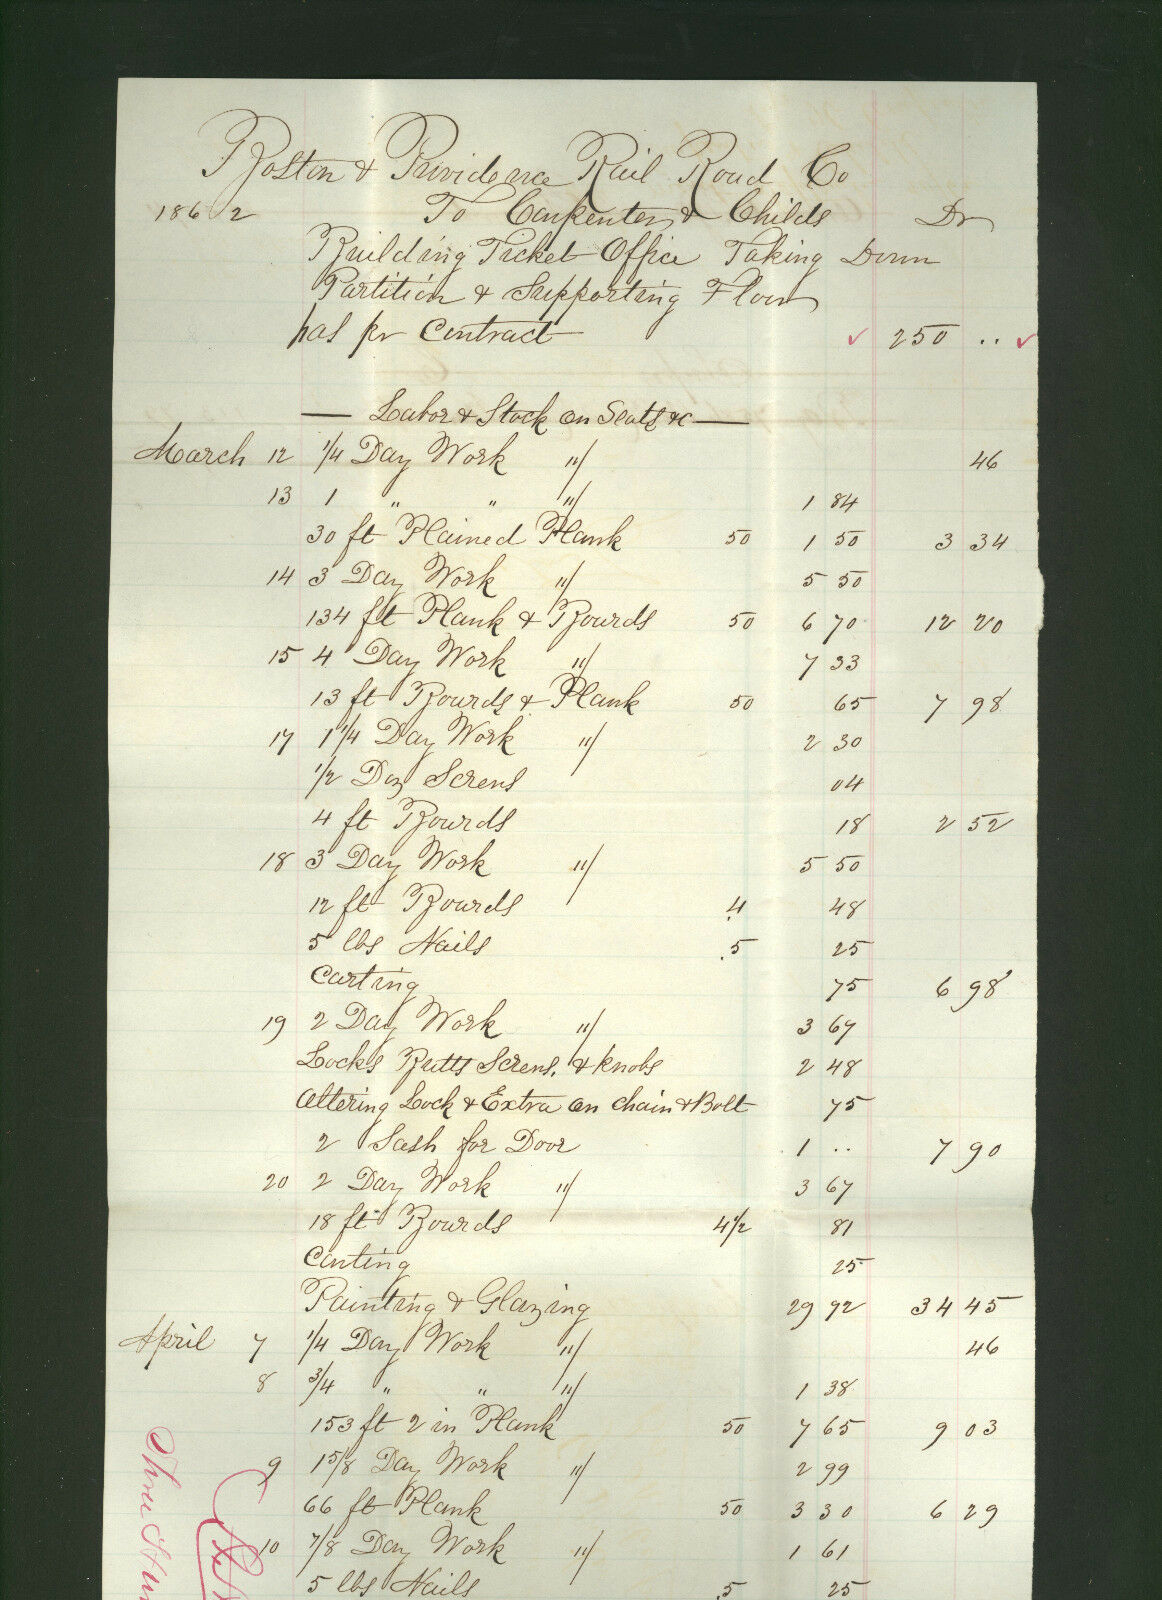 Boston & Providence Rail Road Co
1862 To Carpenter & Childs Dr
Building Ticket Office Taking Down
Partition & Supporting Floor
as pr Contract 250 ..
Labor & Stock on Seats &c
March 12 1/4 Day Work " 46
13 1 " " " 1 84
30 ft Plained Plank 50 1 50 3 34
14 3 Day Work " 5 50
134 ft Plank & Bourds 50 6 70 12 20
15 4 Day Work " 7 33
13 ft Bourds & Plank 50 65 7 98
17 1 1/4 Day Work " 2 30
1/2 Doz Screws 04
4 ft Bourds 18 2 52
18 3 Day Work " 5 50
12 ft Bourds 4 48
5 lbs Nails 5 25
Carting 75 6 98
19 2 Day Work " 3 67
Locks Butts Screws. & Knobs 2 48
Altering Lock & Extra on Chain & Bolt 75
2 Sash for Door 1 .. 7 90
20 2 Day Work " 3 67
18 ft Bourds 4 1/2 81
Carting 25
Painting & Glazing 29 92 34 45
April 7 1/4 Day Work " 46
8 3/4 " " " 1 38
153 ft 2 in Plank 50 7 65 9 03
9 1 5/8 Day Work " 2 99
66 ft Plank 50 3 30 6 29
10 7/8 Day Work " 1 61
5 lbs Nails 5 25
Three Hun